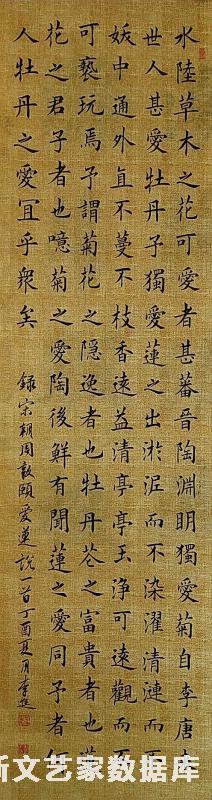 水陸草木之花可愛者甚蕃晉陶淵明獨愛菊自李唐
世人甚愛牡丹予獨愛蓮之出淤泥而不染濯清漣而
妖中通外直不蔓不枝香遠益清亭亭玉浄可遠觀而
可褻玩焉予謂菊花之隱逸者也牡丹花之富貴者也
花之君子者也噫菊之愛陶後鮮有聞蓮之愛同予者何
人牡丹之愛宜乎衆矣
錄宋朝周敦頤愛蓮説一首丁酉夏月李
文艺家数据库